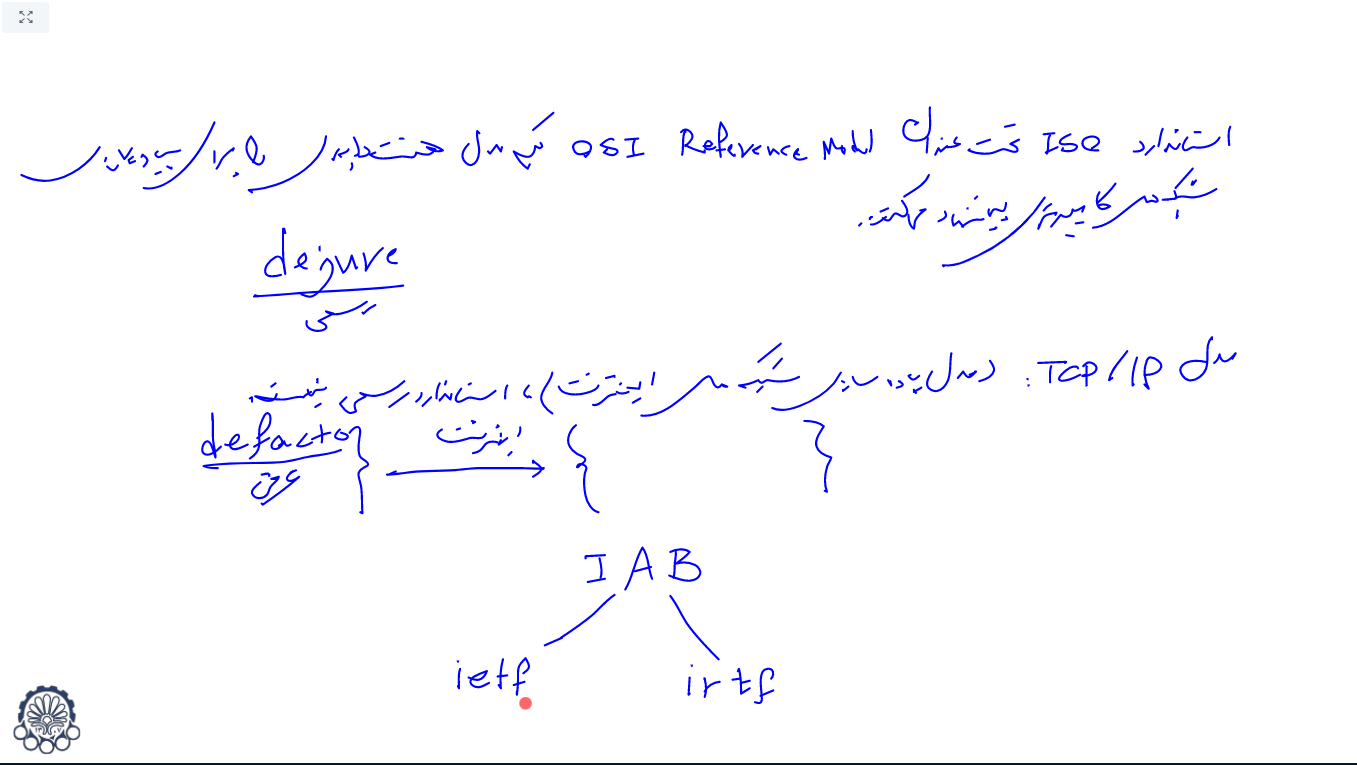 استاندارد ISO تحت عنوان OSI Reference Model یک مدل هفت‌لایه‌ای را برای پیاده‌سازی
شبکه‌های کامپیوتری پیشنهاد می‌کند.
dejure
رسمی
مدل TCP/IP : (مدل پیاده‌سازی شبکه‌های اینترنت)، استاندارد رسمی نیست.
defacto } اینترنت { }
عرفی
IAB
ietf irtf